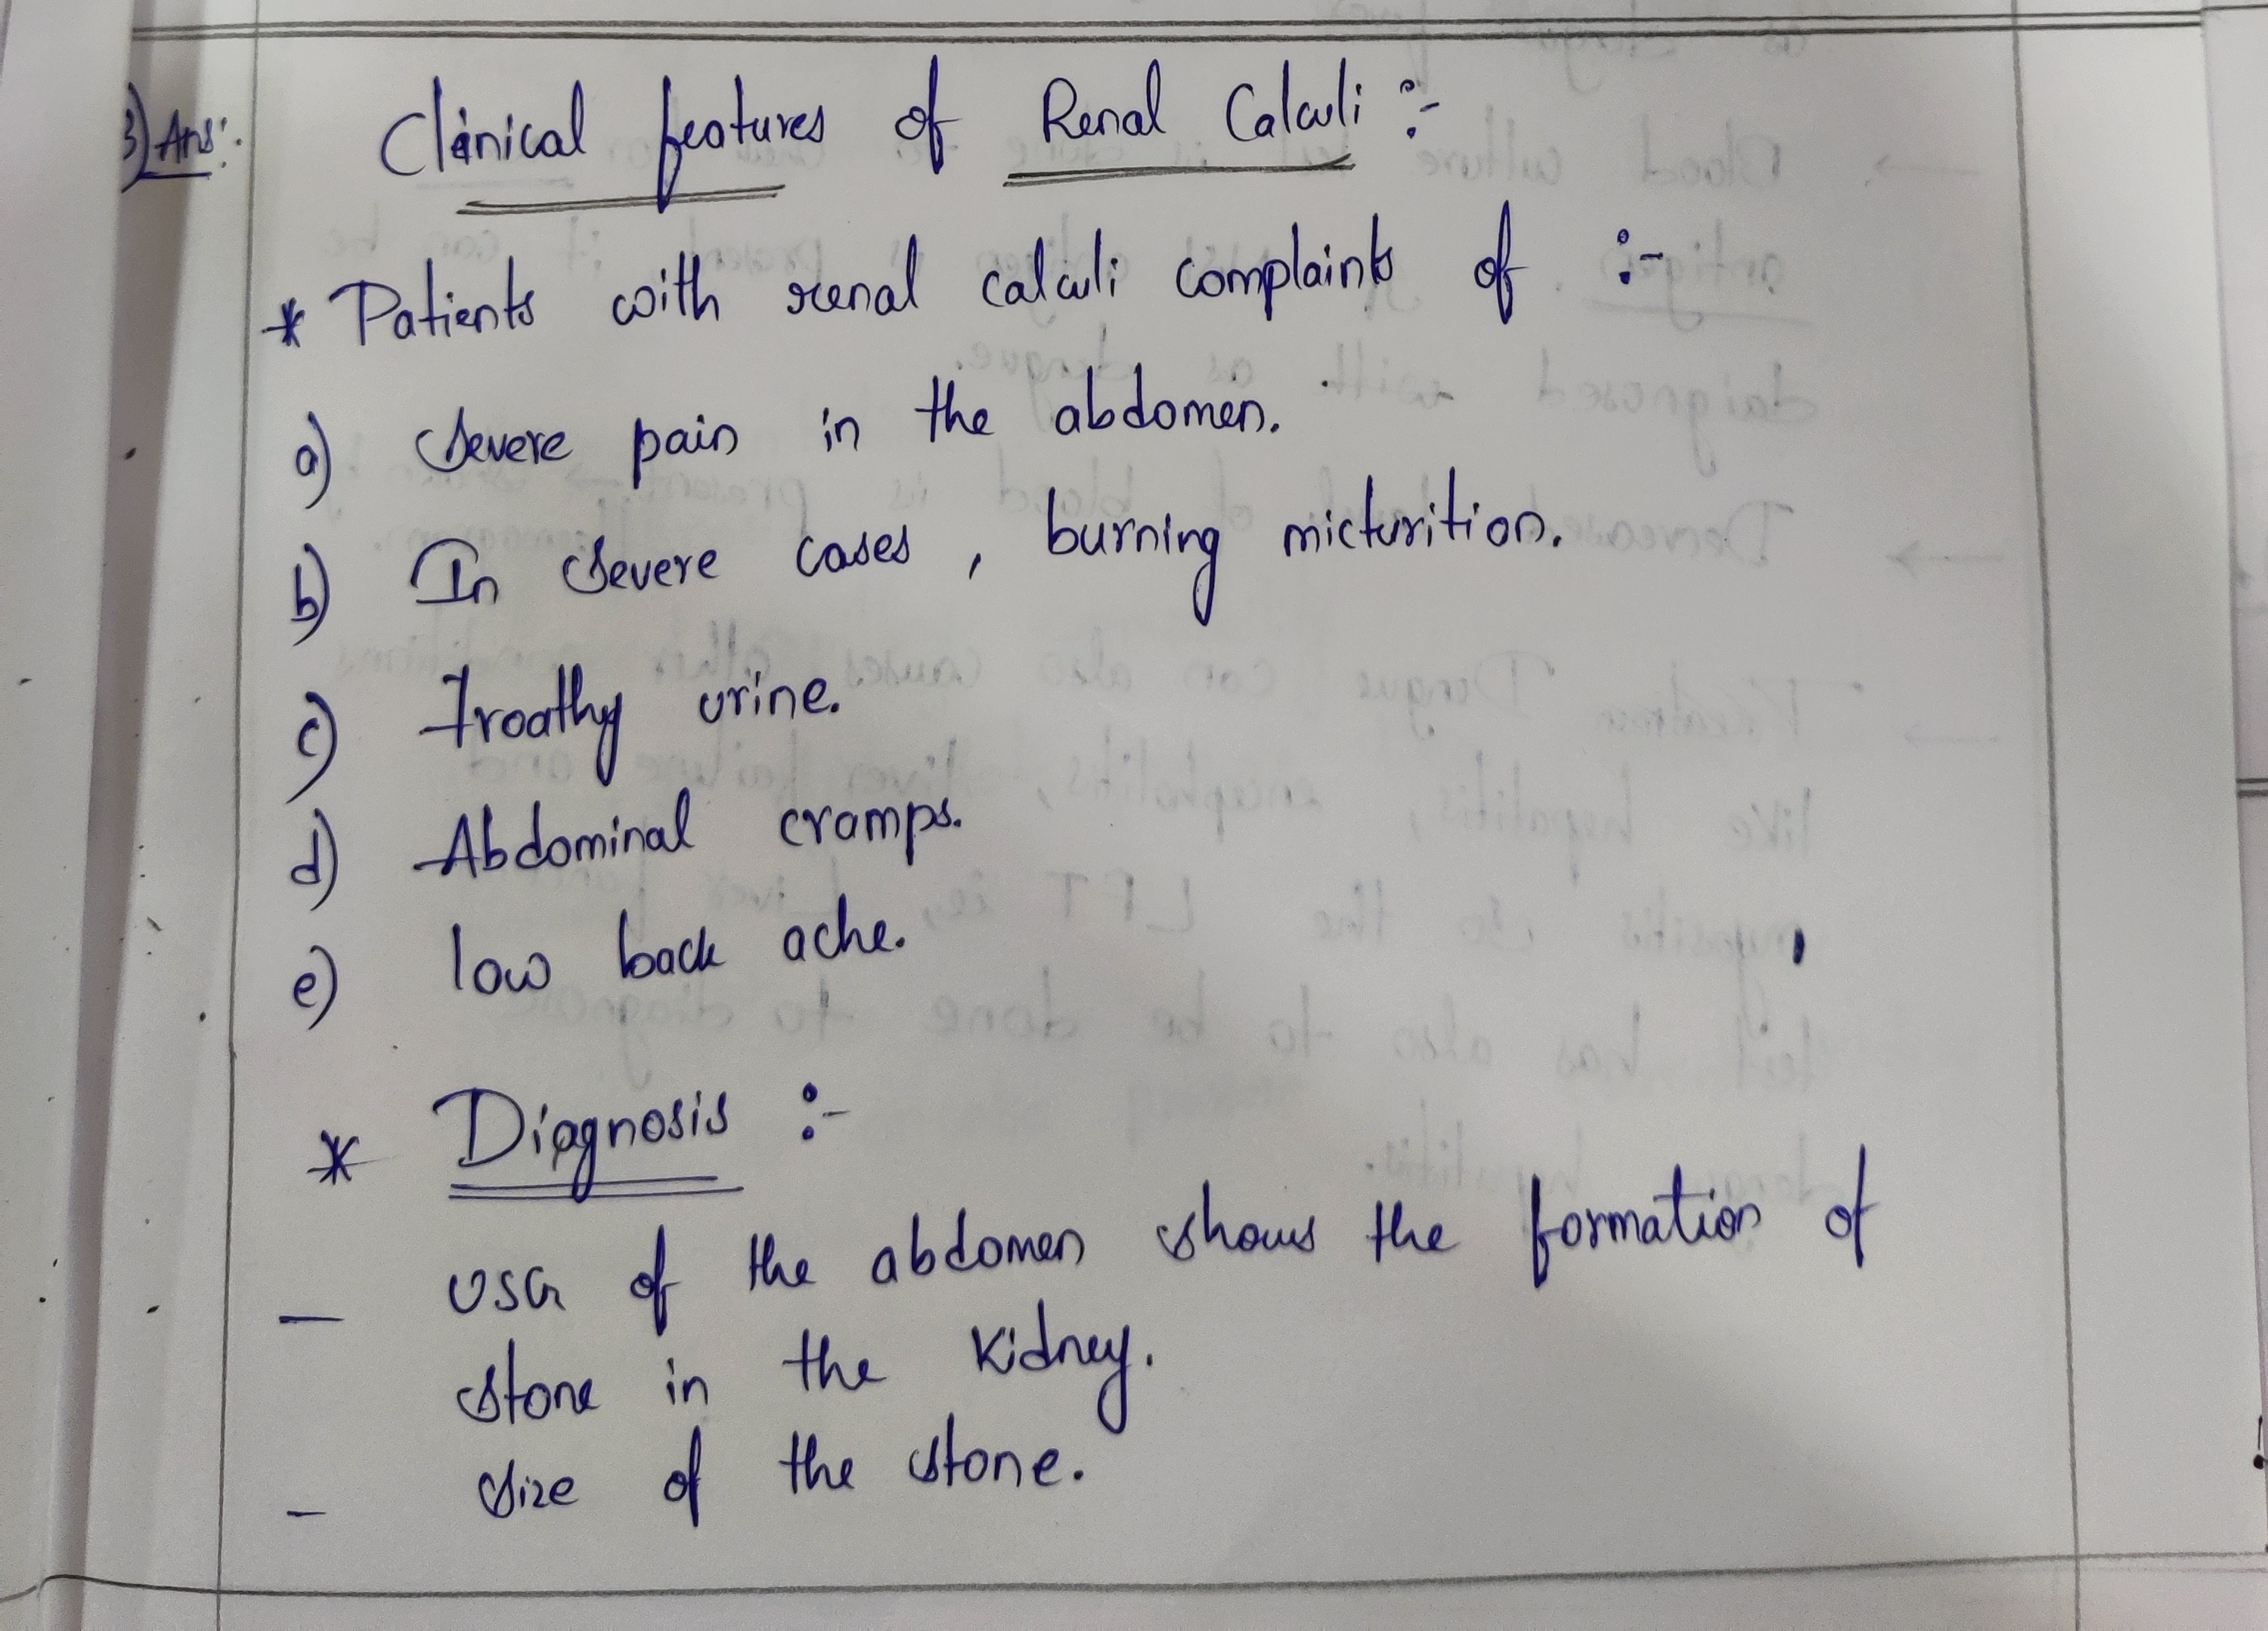 3) Ans:-
Clinical features of Renal Calculi :-
* Patients with renal calculi complaints of :-
a) Severe pain in the abdomen.
b) In severe cases , burning micturition.
c) Froathy urine.
d) Abdominal cramps.
e) low back ache.
* Diagnosis :-
— USG of the abdomen shows the formation of
stone in the kidney.
– size of the stone.